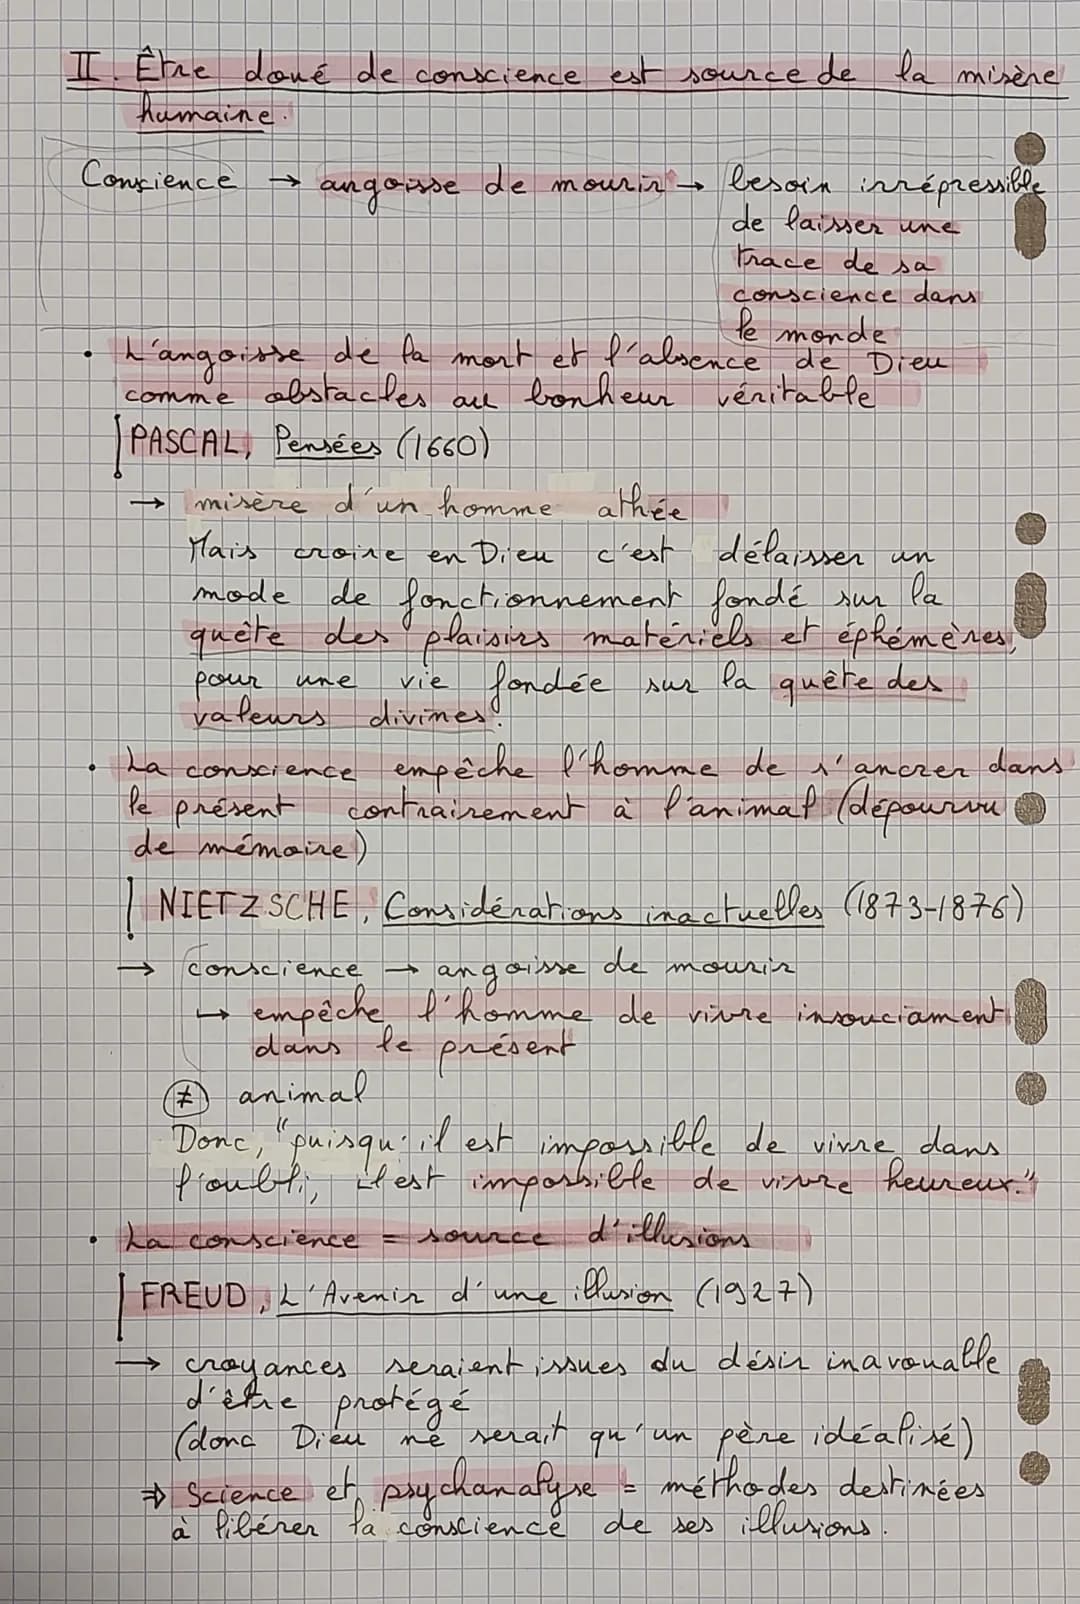 II. Être doué de conscience est source de la misère
humaine.
Conscience → angoisse de mourir → besoin irrépressible
de laisser une
trace de sa
conscience dans
le monde
• L'angoisse de la mort et l'absence de Dieu
comme obstacles au bonheur véritable
PASCAL, Pensées (1660)
→ misère d'un homme athée
Mais croire en Dieu c'est délaisser un
mode de fonctionnement fondé sur la
quête des plaisirs matériels et éphémères,
pour une vie fondée sur la quête des
valeurs divines.
• La conscience empêche l'homme de s'ancrer dans
le présent contrairement à l'animal (dépourvu
de mémoire)
NIETZSCHE, Considérations inactuelles (1873-1876)
→ conscience → angoisse de mourir
↳ empêche l'homme de vivre insouciament
dans le présent
≠ animal
Donc, "puisqu'il est impossible de vivre dans
l'oubli, il est impossible de vivre heureux."
• La conscience = source d'illusions
FREUD, L'Avenir d'une illusion (1927)
→ croyances seraient issues du désir inavouable
d'être protégé
(donc Dieu ne serait qu'un père idéalisé)
⇒ Science et psychanalyse = méthodes destinées
à libérer la conscience de ses illusions.